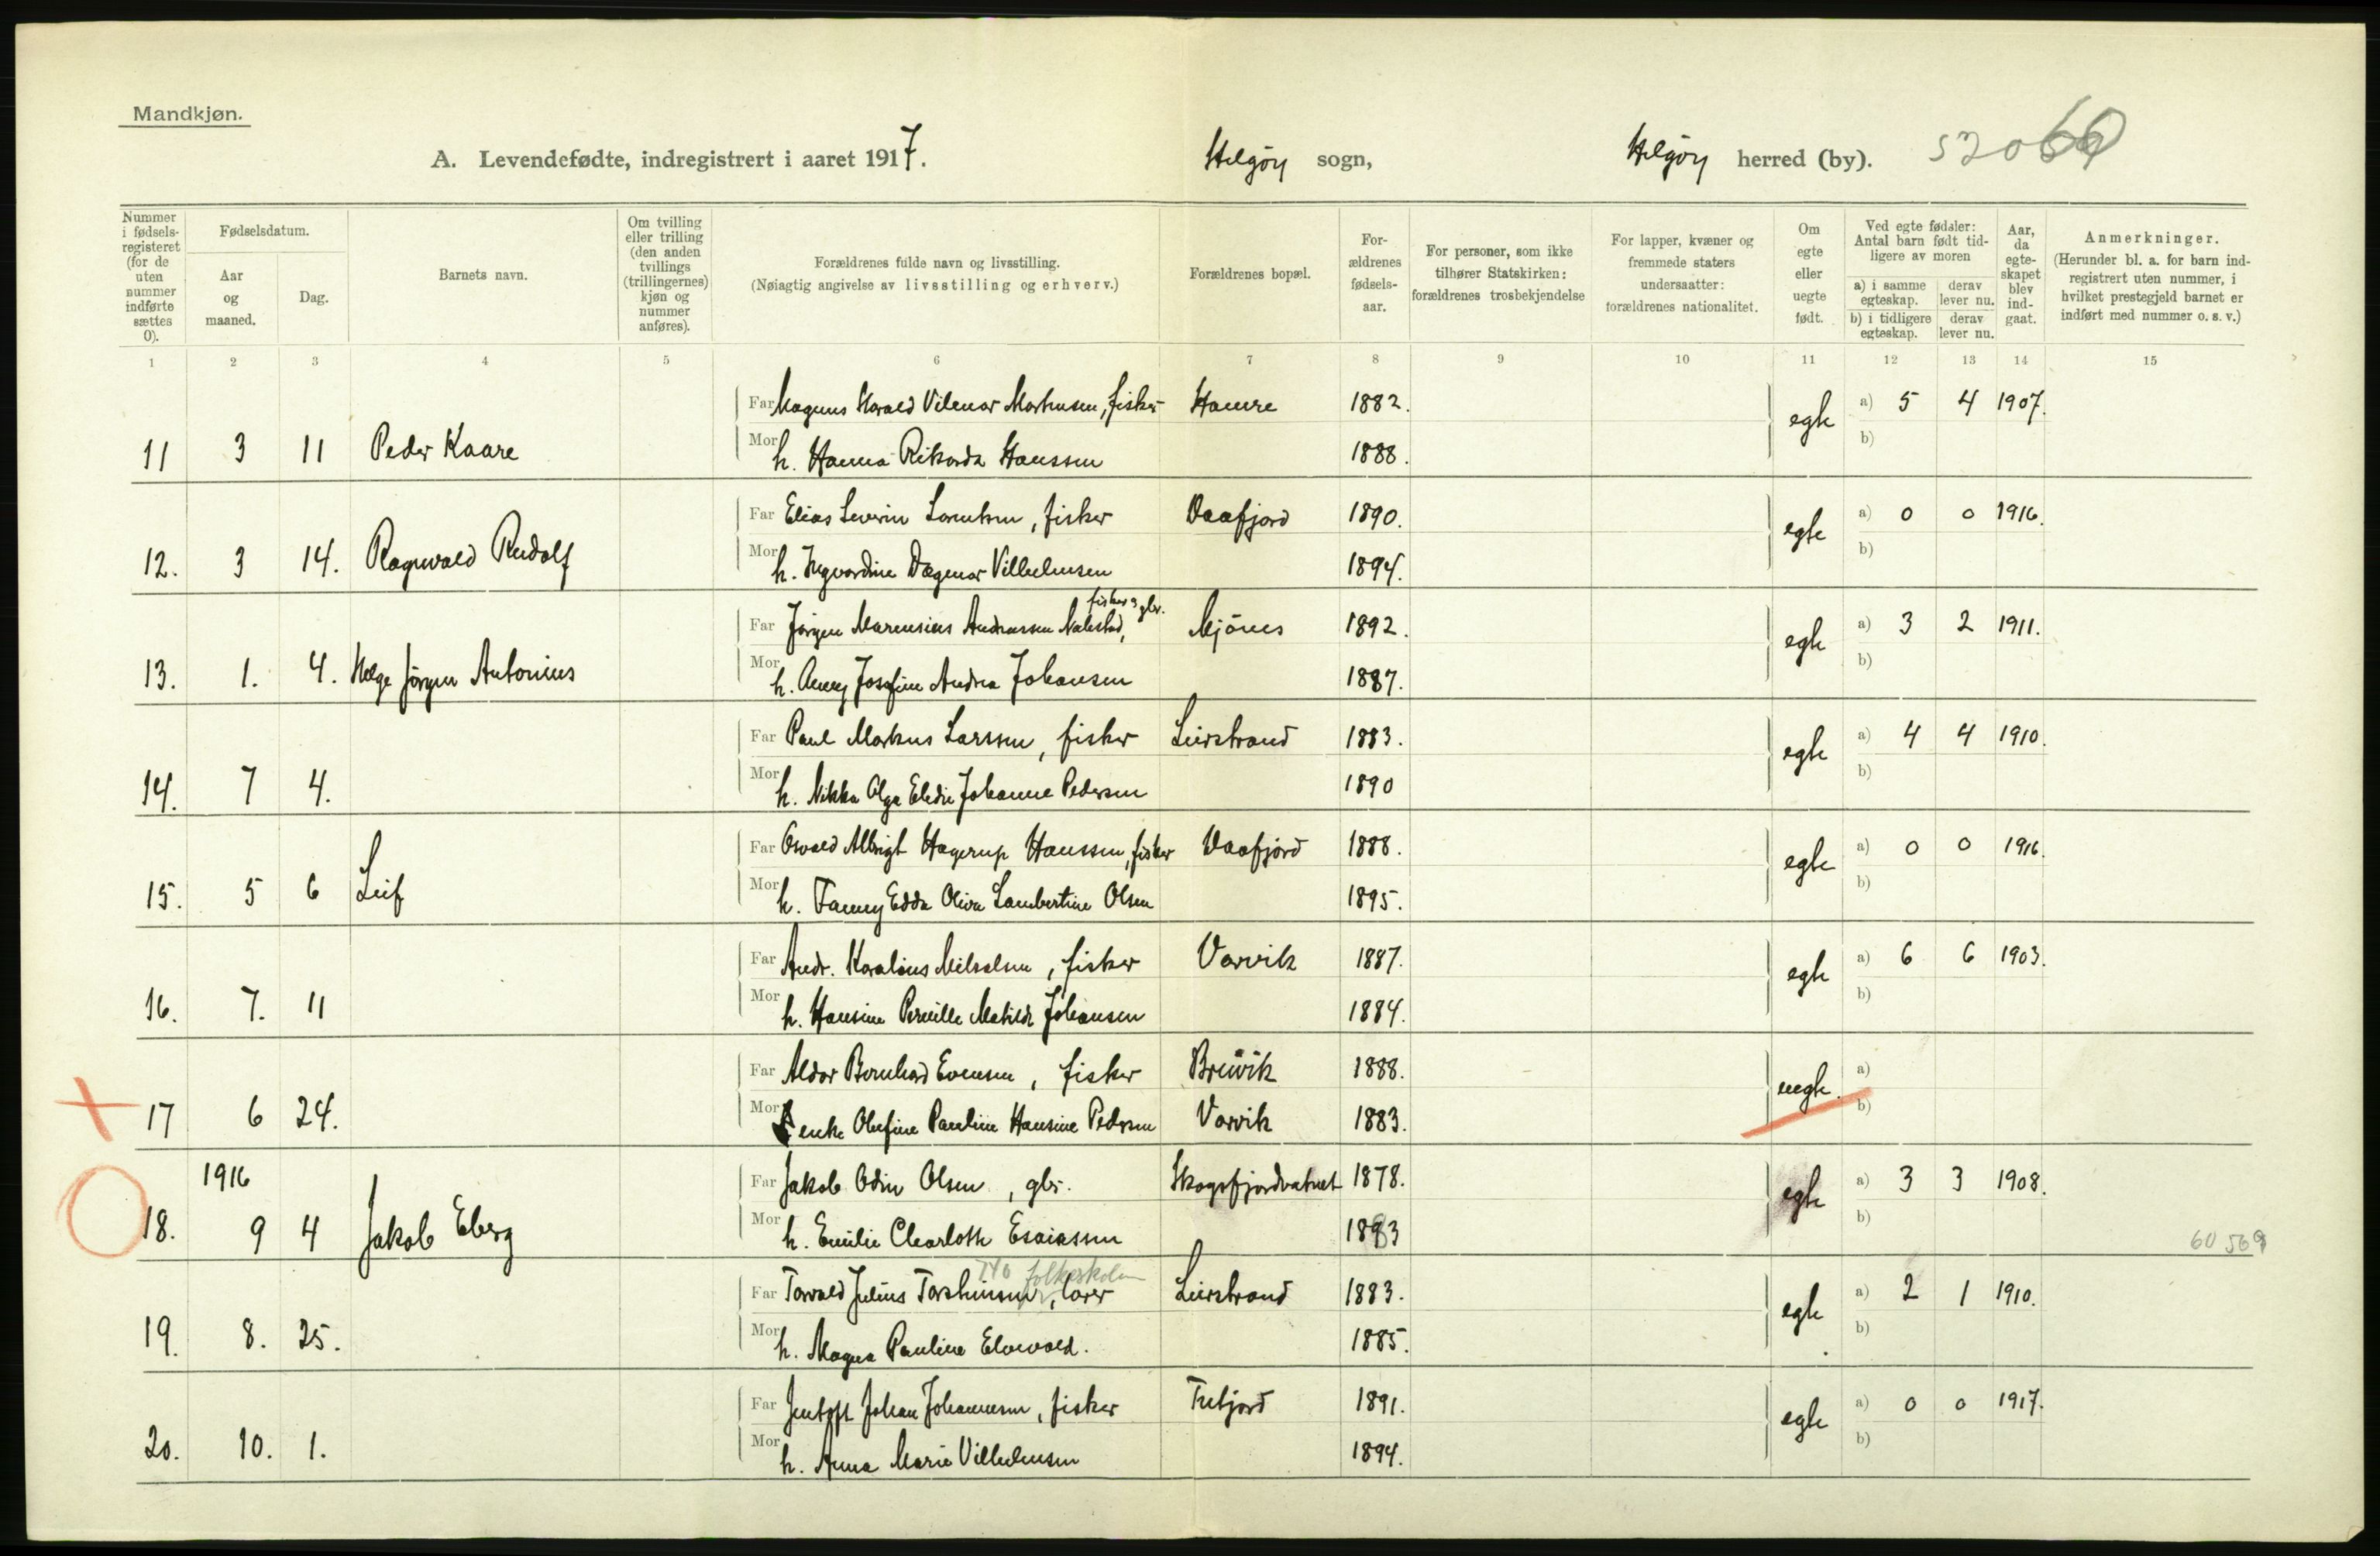 Mandkjøn.
A. Levendefødte, indregistrert i aaret 1917. Helgöy sogn, Helgöy herred (by). 520 69
Nummer i fødselsregisteret (for de uten nummer indførte sættes 0).
Fødselsdatum.
Aar og maaned.
Dag.
Barnets navn.
Om tvilling eller trilling (den anden tvillings (trillingernes) kjøn og nummer anføres).
Forældrenes fulde navn og livsstilling.
(Nøiagtig angivelse av livsstilling og erhverv.)
Forældrenes bopæl.
Forældrenes fødselsaar.
For personer, som ikke tilhører Statskirken: forældrenes trosbekjendelse
For lapper, kvæner og fremmede staters undersaatter: forældrenes nationalitet.
Om egte eller uegte født.
Ved egte fødsler: Antal barn født tidligere av moren
a) i samme egteskap. derav lever nu.
b) i tidligere egteskap. derav lever nu.
Aar, da egteskapet blev indgaat.
Anmerkninger.
(Herunder bl. a. for barn indregistrert uten nummer, i hvilket prestegjeld barnet er indført med nummer o. s. v.)
1 2 3 4 5 6 7 8 9 10 11 12 13 14 15
Far Magnus Harald Vilmar Mortensen, fisker Hamre 1882. egte a) 5 4 1907.
11 3 11 Peder Kaare Mor h. Hanna Rikarda Hanssen 1888. b)
Far Elias Severin Lorentsen, fisker Vaafjord 1890. egte a) 0 0 1916.
12. 3 14. Ragnvald Rudolf Mor h. Ingvardine Dagmar Vilhelmsen 1894. b)
fisker & gbr.
Far Jörgen Marensius Andreassen Nakstad, Mjönes 1892. egte a) 3 2 1911.
13. 1. 4. Helge Jörgen Antonius Mor h. Anny Josefine Andrea Johansen 1887. b)
Far Paul Markus Larssen, fisker Leirstrand 1883. egte a) 4 4 1910.
14. 7 4. Mor h. Nikka Olga Elidie Johanne Pedersen 1890 b)
Far Osvald Albrigt Hagerup Hanssen, fisker Vaafjord 1888. egte a) 0 0 1916.
15. 5 6 Leif Mor h. Fanny Edda Oliva Lambertine Olsen 1895. b)
Far Andr. Karolius Mikalsen, fisker Vorvik 1887. egte a) 6 6 1903.
16. 7. 11 Mor h. Hansine Pernille Matilde Johansen 1884. b)
Far Aldor Bernhard Evensen, fisker Breivik 1888. uegte. a)
17 6 24. Mor enke Olufine Pauline Hansine Pedersen Vorvik 1883. b)
1916 Far Jakob Odin Olsen, gbr. Skogsfjordvatnet 1878. egte a) 3 3 1908.
18. 9 4 Jakob Eberg Mor h. Emilie Charlotte Esaiassen 1883 b) 60 569
740 folkeskolen
Far Torvald Julius Torstensen, lærer Leirstrand 1883. egte a) 2 1 1910.
19. 8. 25. Mor h. Magna Pauline Elvevold. 1885. b)
Far Jentoft Johan Johannesen, fisker 1891. egte a) 0 0 1917.
20. 10. 1. Mor h. Anna Marie Vilhelmsen 1894. b)